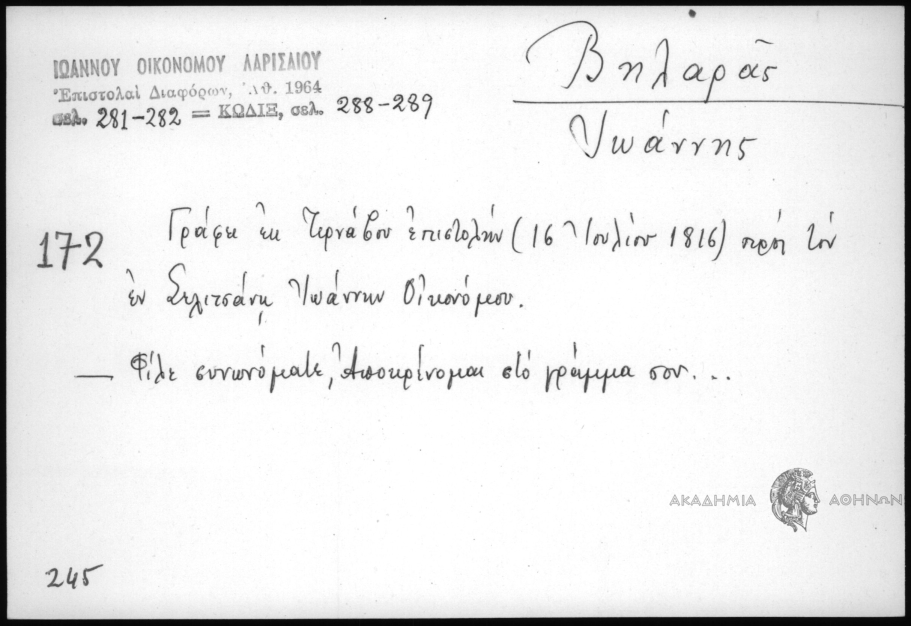 ΙΩΑΝΝΟΥ ΟΙΚΟΝΟΜΟΥ ΛΑΡΙΣΑΙΟΥ
Ἐπιστολαὶ Διαφόρων, Ἀθ. 1964
σελ. 281-282 = ΚΩΔΙΞ, σελ. 288-289
Βηλαρᾶς
Ἰωάννης
172
Γράφει ἐκ Τερνάβου ἐπιστολήν (16 Ἰουλίου 1816) πρός τόν
ἐν Σελιτσάνῃ Ἰωάννην Οἰκονόμου.
— Φίλε συνωνόματε, Ἀποκρίνομαι στό γράμμα σου...
ΑΚΑΔΗΜΙΑ ΑΘΗΝΩΝ
245